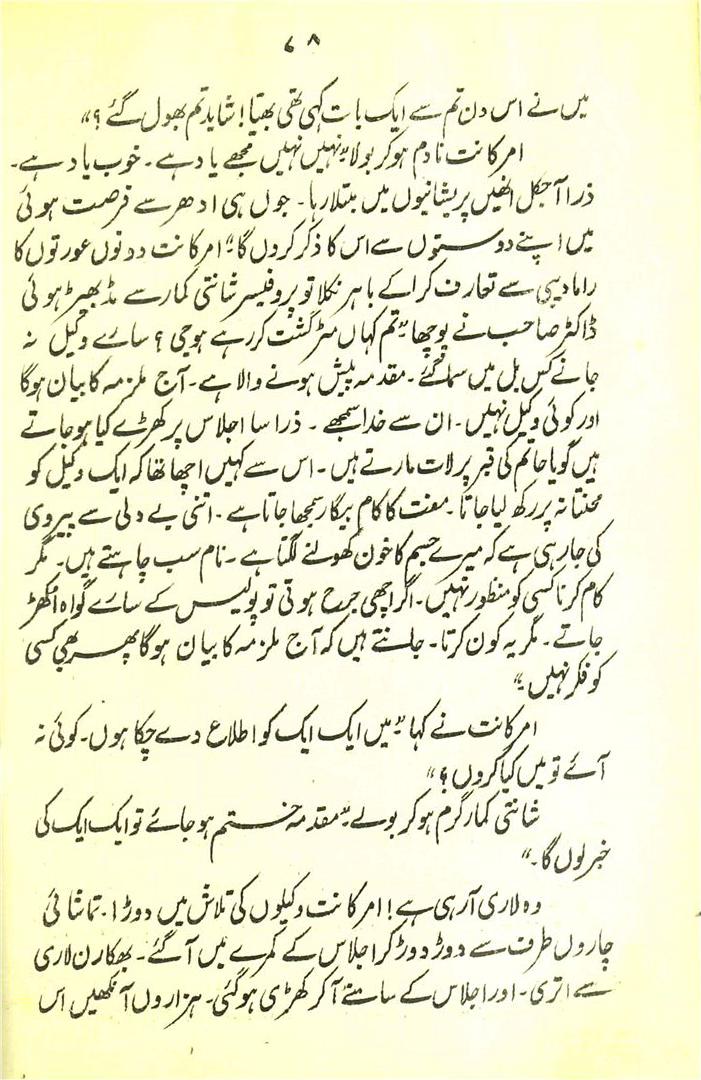 ۷۸
میں نے اس دن تم سے ایک بات کہی تھی بھیّا! شاید تم بھول گئے؟"
امرکانت نادم ہوکر بولا "نہیں نہیں مجھے یاد ہے۔ خوب یاد ہے۔
ذرا آجکل انھیں پریشانیوں میں مبتلا رہا۔ جوں ہی ادھر سے فرصت ہوئی
میں اپنے دوستوں سے اس کا ذکر کروں گا۔" امرکانت دونوں عورتوں کا
راما دیبی سے تعارف کرا کے باہر نکلا تو پروفیسر شانتی کمار سے مڈبھیڑ ہوئی
ڈاکٹر صاحب نے پوچھا "تم کہاں مٹر گشت کر رہے ہو جی؟ سارے وکیل نہ
جانے کس بل میں سما گئے۔ مقدمہ پیش ہونے والا ہے۔ آج ملزمہ کا بیان ہوگا
اور کوئی وکیل نہیں۔ ان سے خدا سمجھے۔ ذرا سا اجلاس پر کھڑے کیا ہو جاتے
ہیں گویا حاتم کی قبر پر لات مارتے ہیں۔ اس سے کہیں اچھا تھا کہ ایک وکیل کو
محنتانہ پر رکھ لیا جاتا۔ مفت کا کام بیگار سمجھا جاتا ہے۔ اتنی بے دلی سے پیروی
کی جا رہی ہے کہ میرے جسم کا خون کھولنے لگتا ہے۔ نام سب چاہتے ہیں۔ مگر
کام کرنا کسی کو منظور نہیں۔ اگر اچھی جرح ہوتی تو پولیس کے سارے گواہ اکھڑ
جاتے۔ مگر یہ کون کرتا۔ جانتے ہیں کہ آج ملزمہ کا بیان ہوگا پھر بھی کسی
کو فکر نہیں۔"
امرکانت نے کہا "میں ایک ایک کو اطلاع دے چکا ہوں۔ کوئی نہ
آئے تو میں کیا کروں؟"
شانتی کمار گرم ہوکر بولے "مقدمہ ختم ہو جائے تو ایک ایک کی
خبر لوں گا۔"
وہ لاری آرہی ہے! امرکانت وکیلوں کی تلاش میں دوڑا۔ تماشائی
چاروں طرف سے دوڑ دوڑ کر اجلاس کے کمرے میں آگئے۔ بھکارن لاری
سے اتری۔ اور اجلاس کے سامنے آکر کھڑی ہوگئی۔ ہزاروں آنکھیں اس